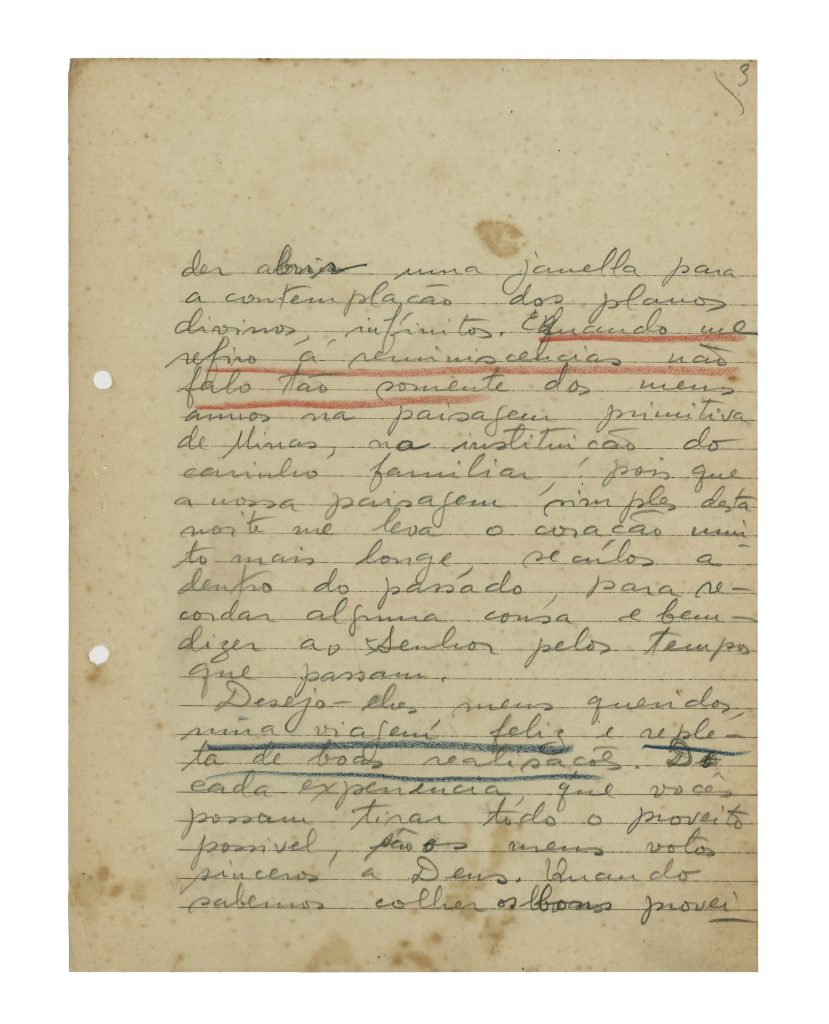 3
der abrir uma janella para
a contemplação dos planos
divinos, infinitos. Quando me
refiro á reminiscencias não
falo tão somente dos meus
annos na paisagem primitiva
de Minas, na instituição do
carinho familiar, pois que
a nossa paisagem simples desta
noite me leva o coração mui-
to mais longe, seculos a
dentro do passado, para re-
cordar alguma cousa e bem-
dizer ao Senhor pelos tempos
que passam.
Desejo-lhes meus queridos,
uma viagem feliz e reple-
ta de boas realisações. De
cada experiencia, que vocês
possam tirar todo o proveito
possivel, são os meus votos
sinceros a Deus. Quando
sabemos colher os bons provei